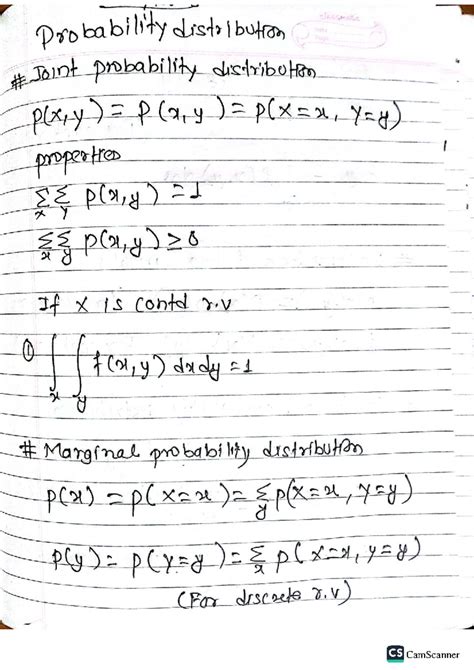 Probability distribution
# Joint probability distribution
P(x,y) = P(x,y) = P(X=x, Y=y)
properties
∑∑ P(x,y) = 1
x y
∑∑ P(x,y) ≥ 0
x y
If X is contd r.v
① ∫ ∫ f(x,y) dxdy = 1
x y
# Marginal probability distribution
P(x) = P(X=x) = ∑ P(X=x, Y=y)
y
P(y) = P(Y=y) = ∑ P(X=x, Y=y)
x
(For discrete r.v)
CS CamScanner